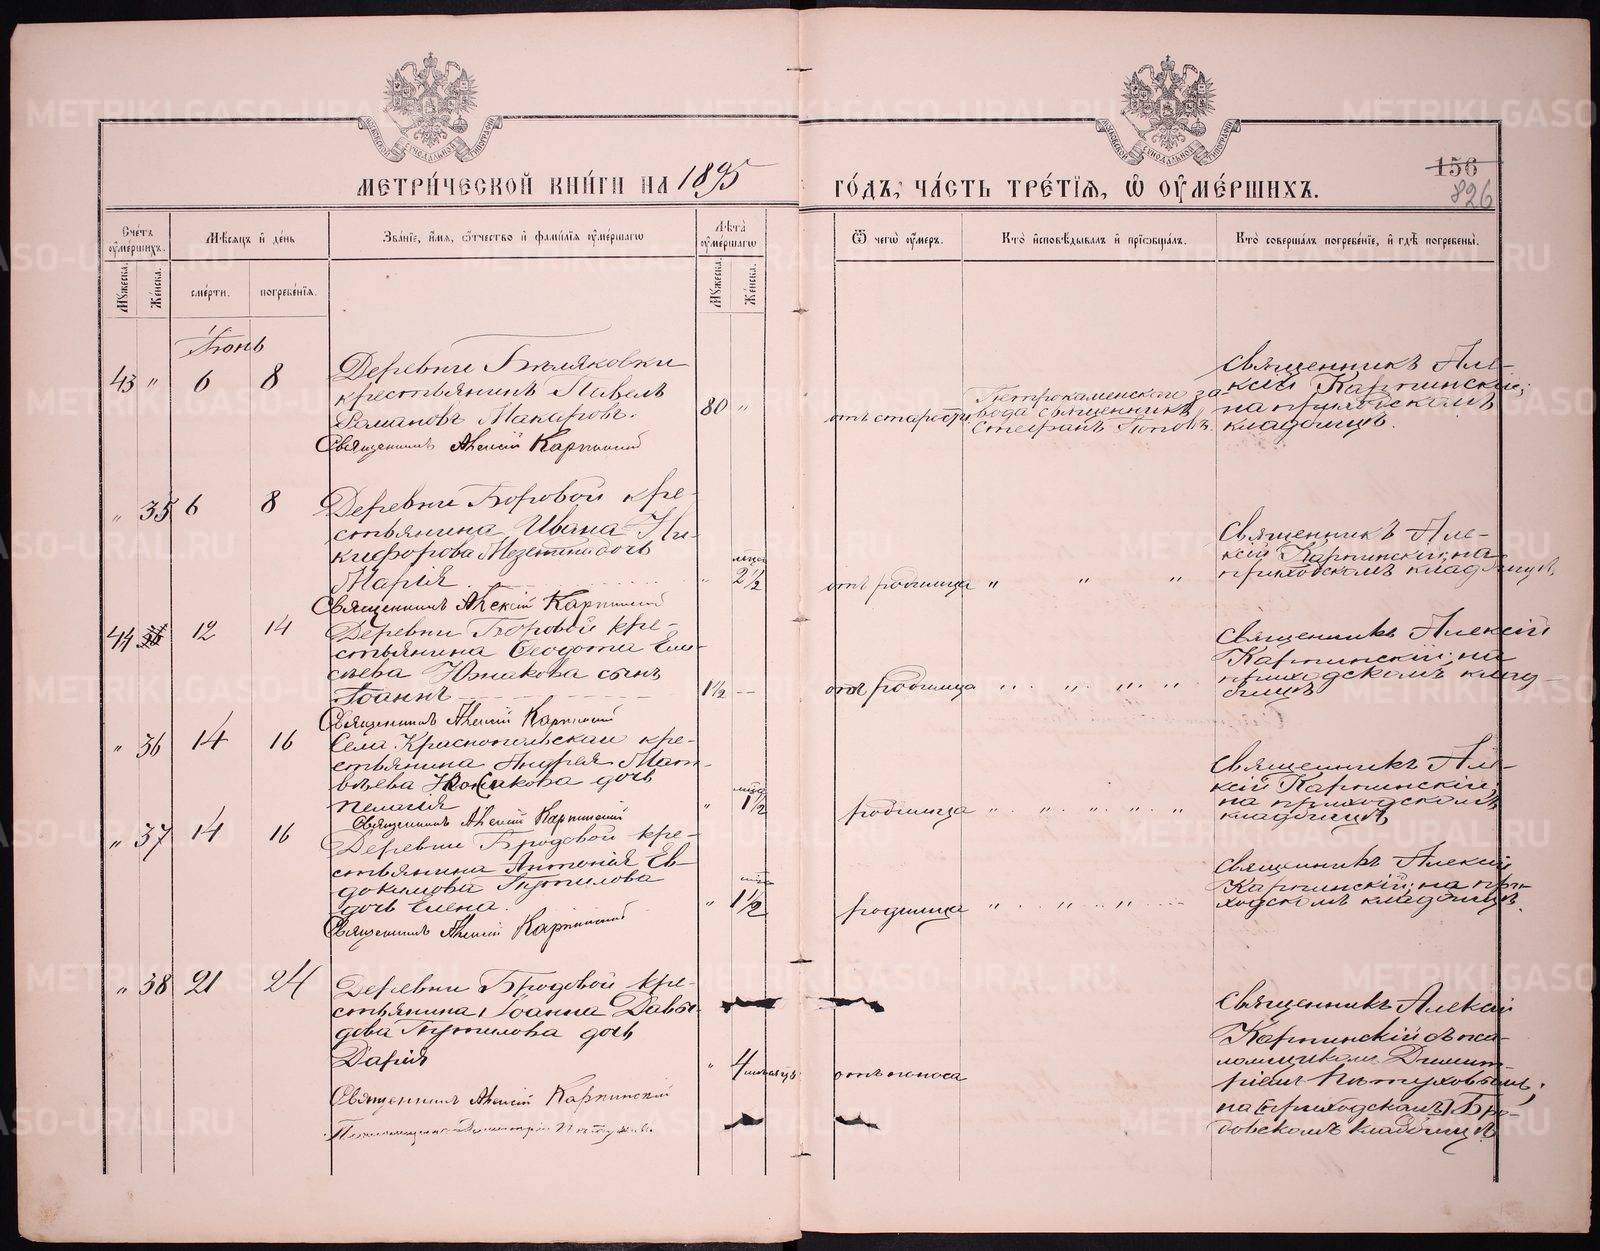 МЕТРИ́ЧЕСКОЙ КНИ́ГИ НА 1895
ГО́ДЪ, ЧА́СТЬ ТРЕ́ТЇѦ, Ѡ҆ ОУ҆МЕ́РШИХЪ.
156
826
Сче́тъ оу҆ме́ршихъ.
Му́жеска.
Же́нска.
Мѣ́сяцъ и҆ де́нь
сме́рти.
погребе́нїѧ.
Зва́нїе, и҆́мѧ, ѻ҆́тчество и҆ фами́лїѧ оу҆ме́ршагѡ
Лѣта̀ оу҆ме́ршагѡ
Му́жеска.
Же́нска.
Ѿ чегѡ̀ оу҆́меръ.
Кто̀ и҆сповѣ́дывалъ и҆ прїѻбща́лъ.
Кто̀ соверша́лъ погребе́нїе, и҆ гдѣ̀ погребены̀.
Іюнь
43 " 6 8
Деревни Беляковки
крестьянинъ Павелъ
Романовъ Макаровъ.
Священникъ Алексій Карпинскій
80 "
отъ старости
Петрокаменскаго за-
вода священникъ
Стефанъ Поповъ.
Священникъ Але-
ксій Карпинскій;
на приходскомъ
кладбищѣ.
" 35 6 8
Деревни Боровой кре-
стьянина Ивана Ни-
кифорова Мезенина дочь
Марія
Священникъ Алексій Карпинскій
" 2½
отъ родимца " " "
Священникъ Але-
ксій Карпинскій; на
приходскомъ кладбищѣ.
44 12 14
Деревни Боровой кре-
стьянина Ѳеодота Ели-
сѣева Южакова сынъ
Іоаннъ
Священникъ Алексій Карпинскій
1½
отъ родимца " " " "
Священникъ Алексій
Карпинскій; на
приходскомъ клад-
бищѣ
" 36 14 16
Села Краснопольскаго кре-
стьянина Андрея Мат-
вѣева дочь
Пелагія
Священникъ Алексій Карпинскій
" 1½
родимца " " " " "
Священникъ Але-
ксій Карпинскій;
на приходскомъ
кладбищѣ
" 37 14 16
Деревни Бродовой кре-
стьянина Антонія Ев-
докимова Путилова
дочь Елена.
Священникъ Алексій Карпинскій
" 1½
родимца " " " "
Священникъ Алексій
Карпинскій; на при-
ходскомъ кладбищѣ.
" 38 21 24
Деревни Бродовой кре-
стьянина Іоанна Давы-
дова Путилова дочь
Дарія
Священникъ Алексій Карпинскій
Псаломщикъ Димитрій Пѣтуховъ.
" 4 мѣсяцъ
отъ поноса
Священникъ Алексій
Карпинскій съ пса-
ломщикомъ Димит-
ріемъ Пѣтуховымъ;
на приходскомъ Бро-
довскомъ кладбищѣ